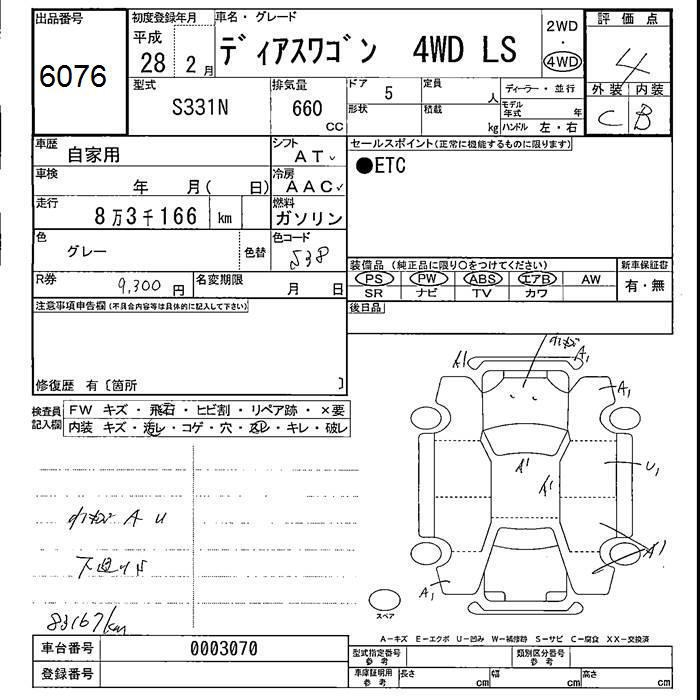 出品番号
6076
初度登録年月
平成
28 2月
車名・グレード
ディアスワゴン 4WD LS
2WD
・
4WD
評価点
4
外装 内装
C B
型式
S331N
排気量
660
CC
ドア
5
定員
人
形状
積載
kg
ディーラー・並行
モデル年式 年
ハンドル 左・右
車歴
自家用
シフト
AT
セールスポイント(正常に機能するものに限ります)
●ETC
車検
年 月( 日)
冷房
AAC
走行
8万3千166 km
燃料
ガソリン
色
グレー
色替
色コード
S38
装備品 (純正品に限り○をつけてください)
PS PW ABS エアB AW
SR ナビ TV カワ
新車保証書
有・無
R券
9,300 円
名変期限
月 日
後日品
注意事項申告欄(不具合内容等は具体的に記入して下さい)
修復歴 有〔箇所 〕
検査員記入欄
FW キズ・飛石・ヒビ割・リペア跡・×要
内装 キズ・汚レ・コゲ・穴・スレ・キレ・破レ
A1
A1
A1
A1
A1
U1
A1
A1
A U
下廻りS
83167km
スペア
A-キズ E-エクボ U-凹み W-補修跡 S-サビ C-腐食 XX-交換済
車台番号
0003070
登録番号
型式指定番号
参考
類別区分番号
参考
車庫証明用
参考
長さ cm
幅 cm
高さ cm